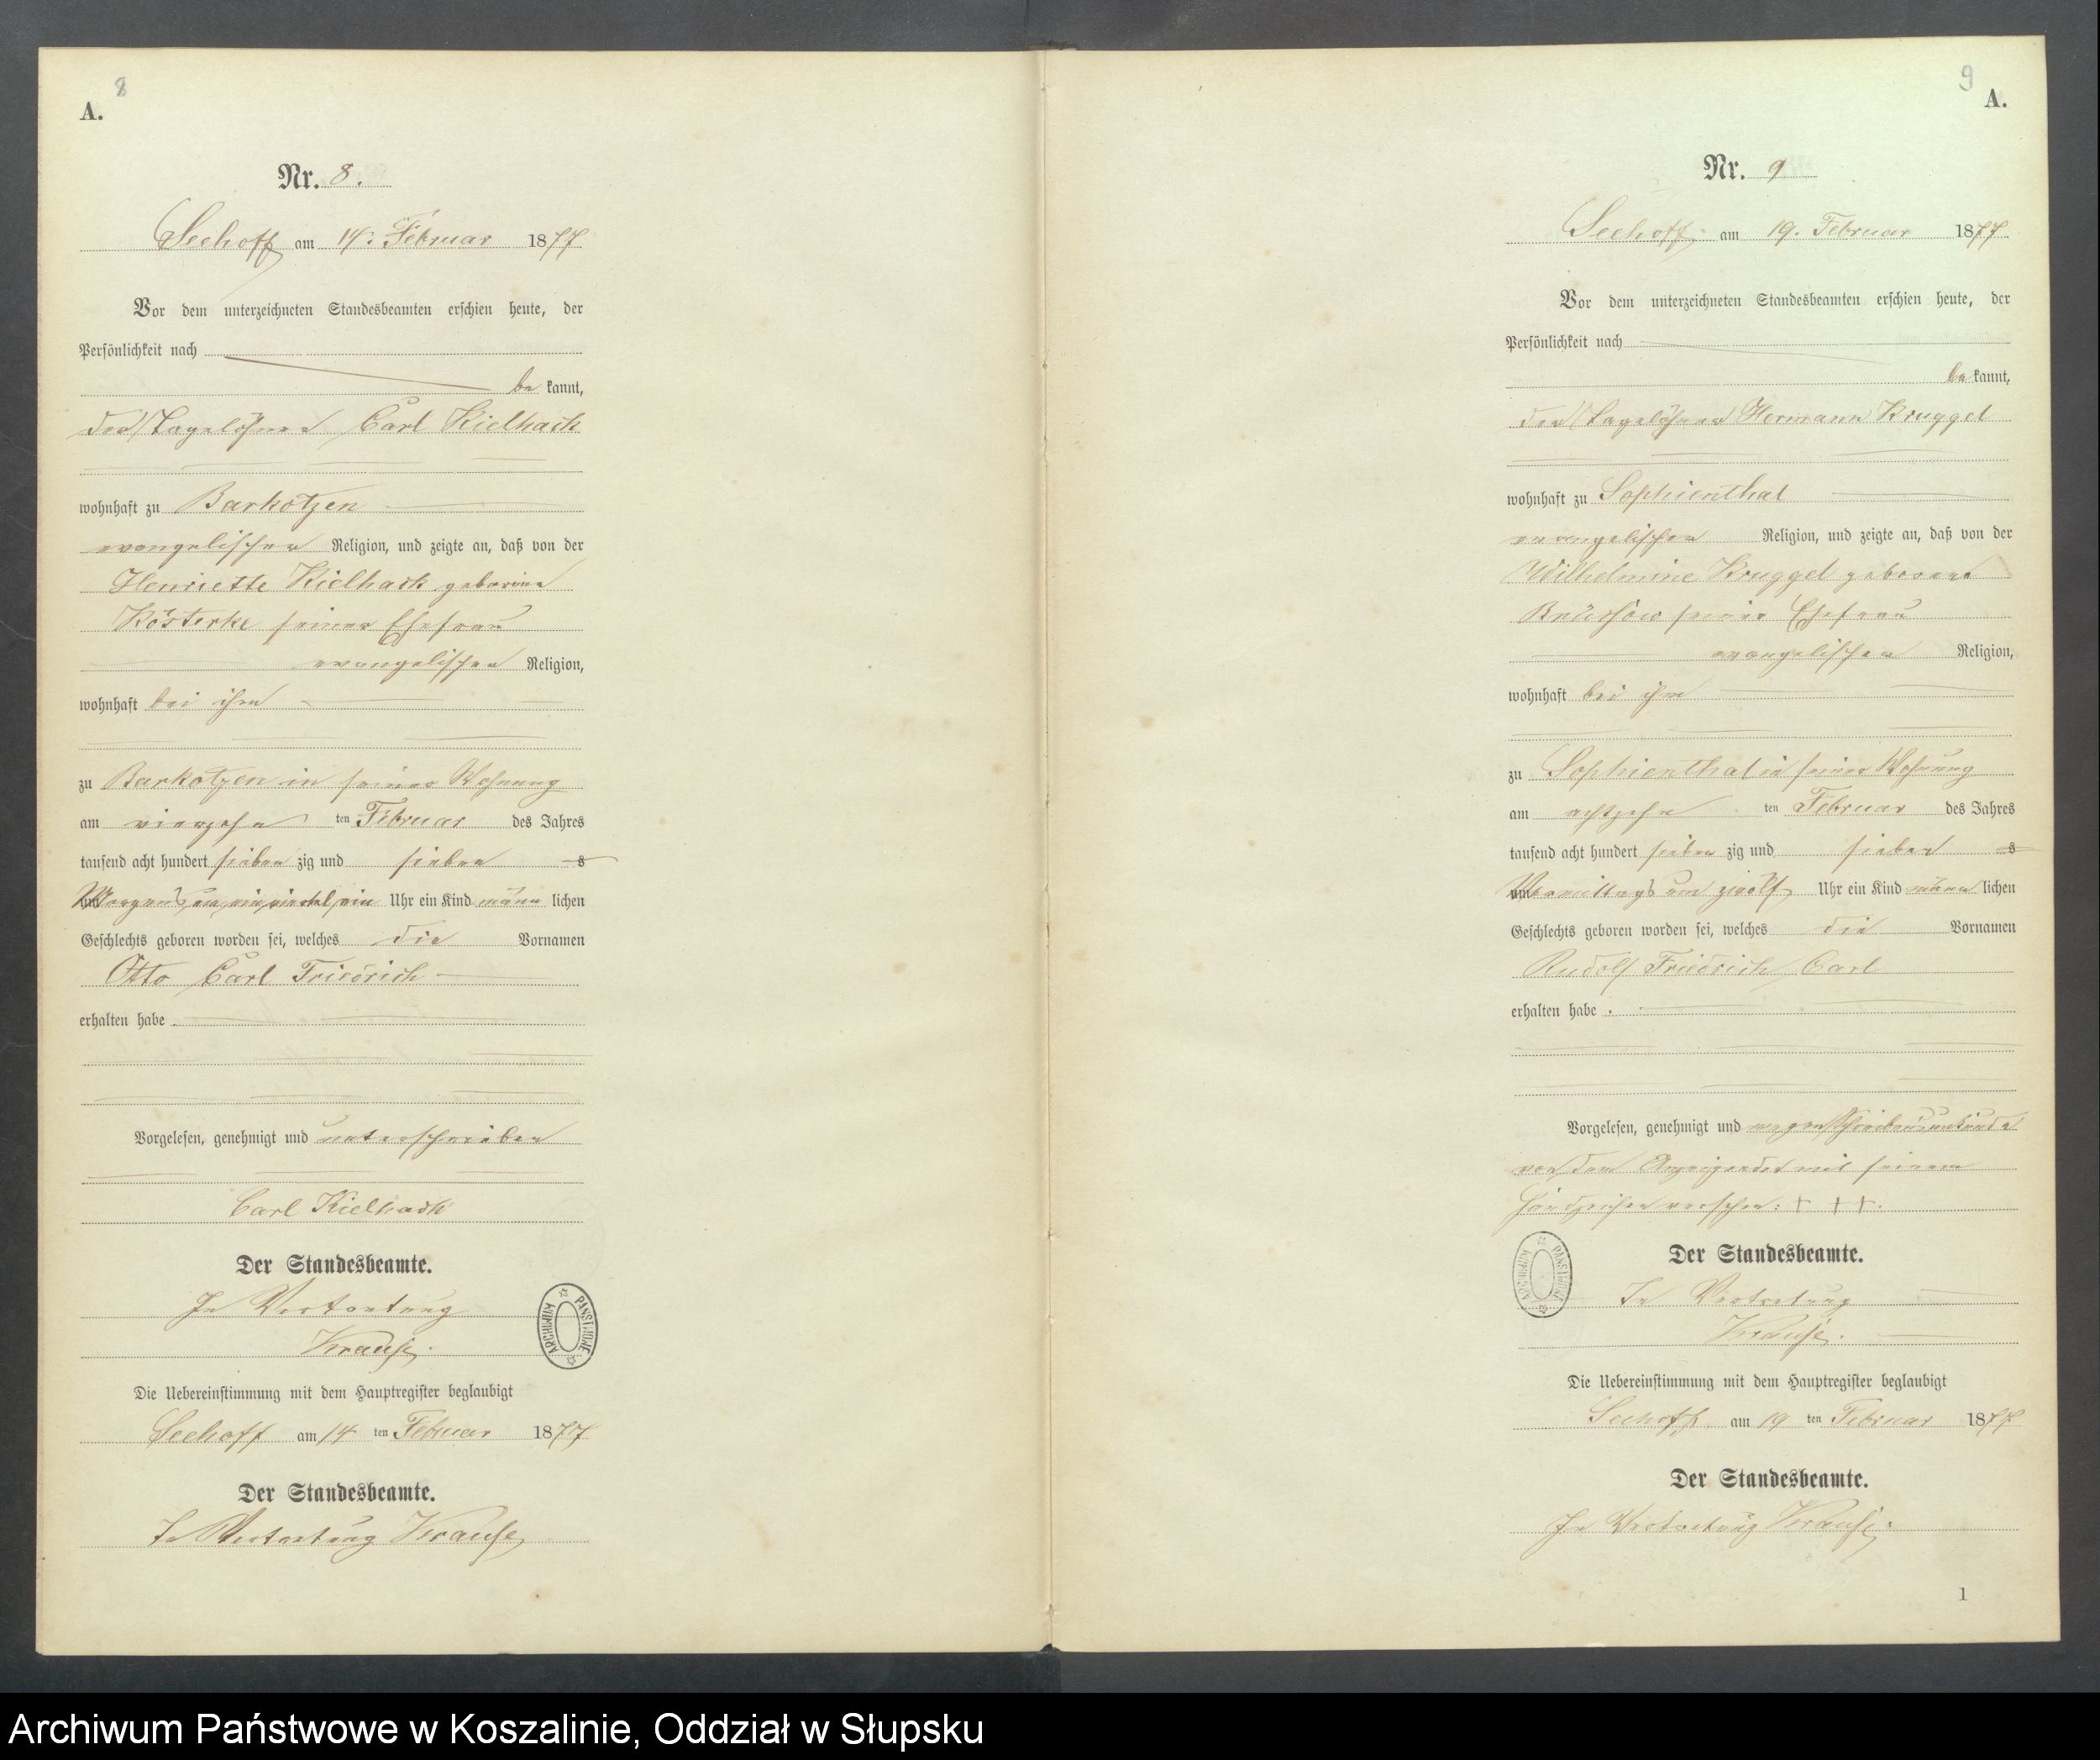 8
A.
Nr. 8.
Seehoff am 14. Februar 1877
Vor dem unterzeichneten Standesbeamten erschien heute, der
Persönlichkeit nach
be kannt,
der Tagelöhner Carl Kielhack
wohnhaft zu Barkotzen
evangelischer Religion, und zeigte an, daß von der
Henriette Kielhack geborene
Kösterke seiner Ehefrau
evangelischer Religion,
wohnhaft bei ihm
zu Barkotzen in seiner Wohnung
am vierzehn ten Februar des Jahres
tausend acht hundert sieben zig und sieben s
Morgens um ein viertel ein Uhr ein Kind männ lichen
Geschlechts geboren worden sei, welches die Vornamen
Otto Carl Friedrich
erhalten habe
Vorgelesen, genehmigt und unterschrieben
Carl Kielhack
Der Standesbeamte.
In Vertretung
Krause.
ARCHIWUM PAŃSTWOWE
Die Uebereinstimmung mit dem Hauptregister beglaubigt
Seehoff am 14 ten Februar 1877
Der Standesbeamte.
In Vertretung Krause
9
A.
Nr. 9
Seehoff am 19. Februar 1877
Vor dem unterzeichneten Standesbeamten erschien heute, der
Persönlichkeit nach
be kannt,
der Tagelöhner Hermann Bruggel
wohnhaft zu Sophienthal
evangelischer Religion, und zeigte an, daß von der
Wilhelmine Bruggel geborene
seiner Ehefrau
evangelischer Religion,
wohnhaft bei ihm
zu Sophienthal in seiner Wohnung
am achtzehn ten Februar des Jahres
tausend acht hundert sieben zig und sieben s
Vormittags um zwölf Uhr ein Kind männ lichen
Geschlechts geboren worden sei, welches die Vornamen
Rudolf Friedrich Carl
erhalten habe.
Vorgelesen, genehmigt und wegen Schreibensunkunde
von dem Anzeigenden mit seinem
Handzeichen versehen: + + +.
Der Standesbeamte.
ARCHIWUM PAŃSTWOWE
In Vertretung
Krause.
Die Uebereinstimmung mit dem Hauptregister beglaubigt
Seehoff am 19 ten Februar 1877
Der Standesbeamte.
In Vertretung Krause.
1
Archiwum Państwowe w Koszalinie, Oddział w Słupsku